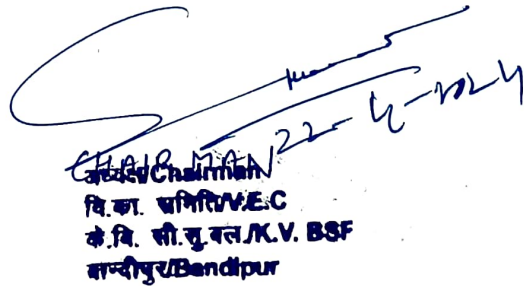 CHAIRMAN 22-4-2024
अध्यक्ष/Chairman
वि.का. समिति/V.E.C
के.वि. सी.सु.बल./K.V. BSF
बान्दीपुर/Bandipur